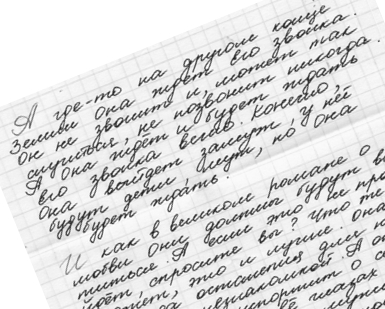 А где-то на другом конце
Земли она ждёт его звонка.
Он не звонит и, может так
случится, не позвонит никогда.
А она ждёт и будет ждать
его звонка вечно. Конечно,
она выйдет замуж, у неё
будут дети, муж, но она
будет ждать.
И как в великом романе о
любви они должны будут в
А если это не про
йдёт, спросите вы? Что
это и лучше. Она
для н
А
о с
глазах